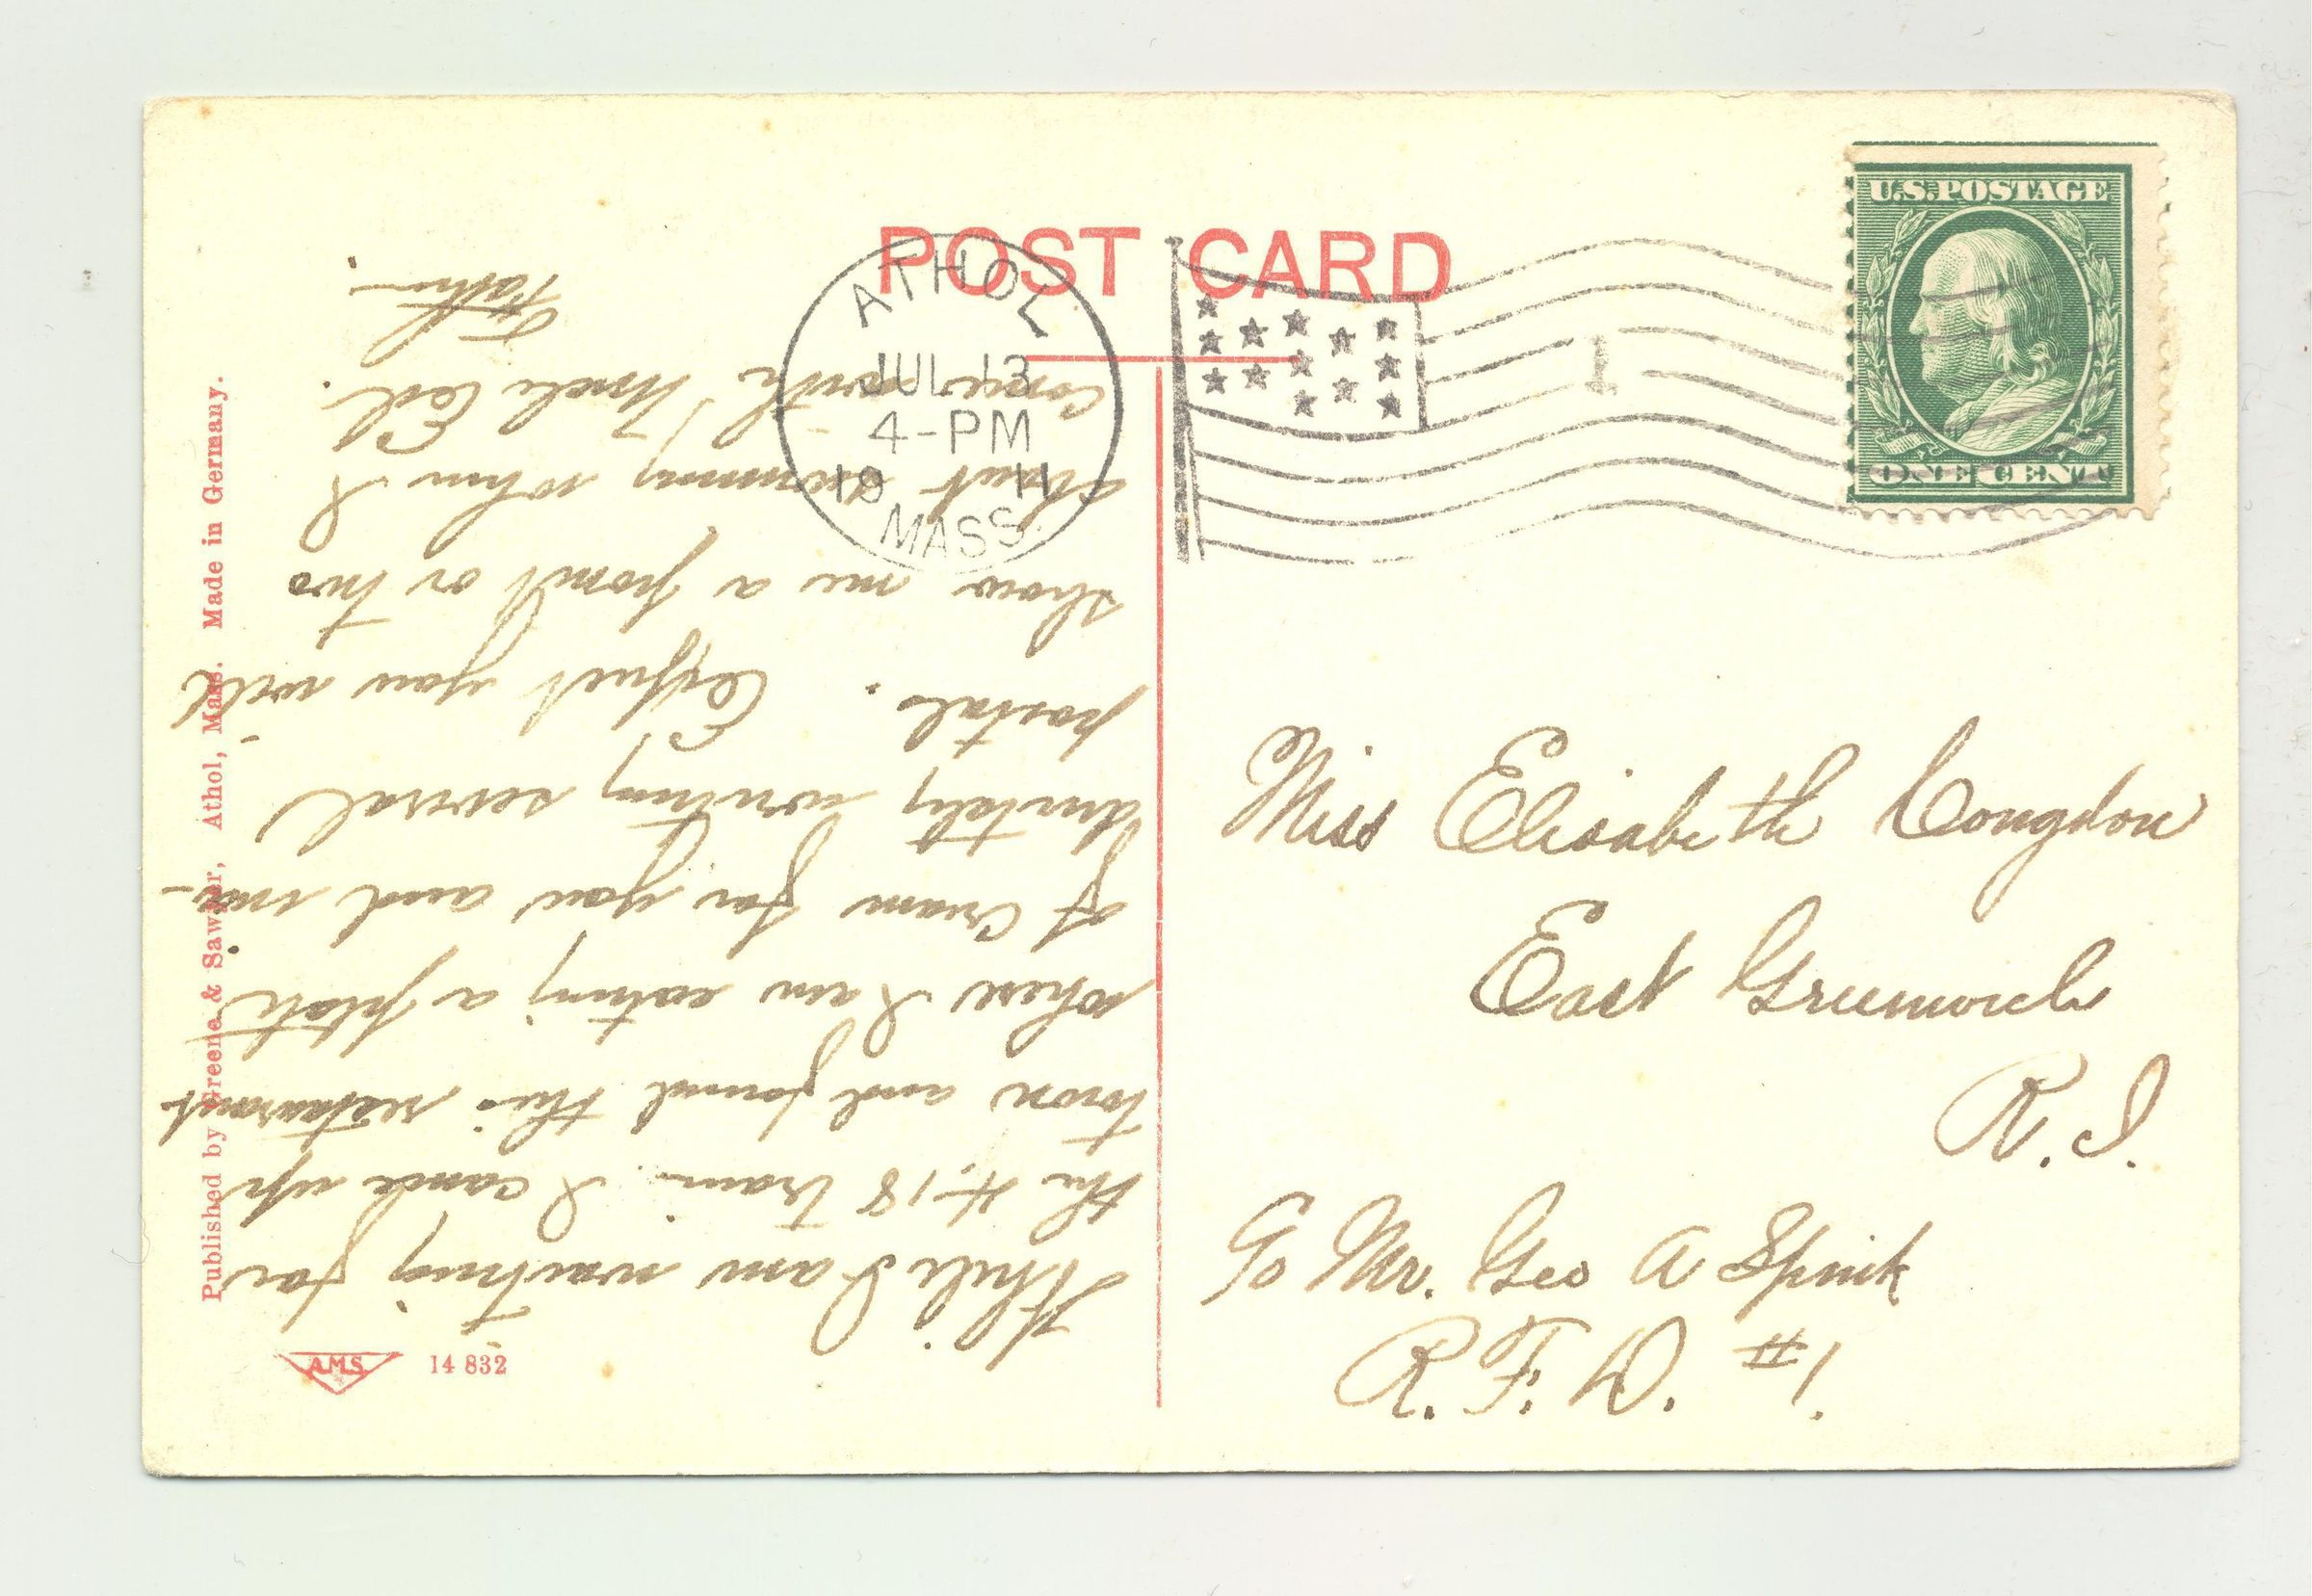 POST CARD
ATHOL
JUL 13
4-PM
19 11
MASS.
1
U.S. POSTAGE
ONE CENT
Miss Elisabeth Congdon
East Greenwich
R. I.
c/o Mr. Geo A Spink
R. F. D. #1.
While I am waiting for
the 4.18 train. I came up
town and found this restaurant
where I am eating a plate
of cream for you and im-
mediately writing several
postals. Expect you will
show me a point or two
about swimming when I
come with Uncle Ed.
Father.
Published by Greene & Sawyer, Athol, Mass. Made in Germany.
A.M.S. 14 832